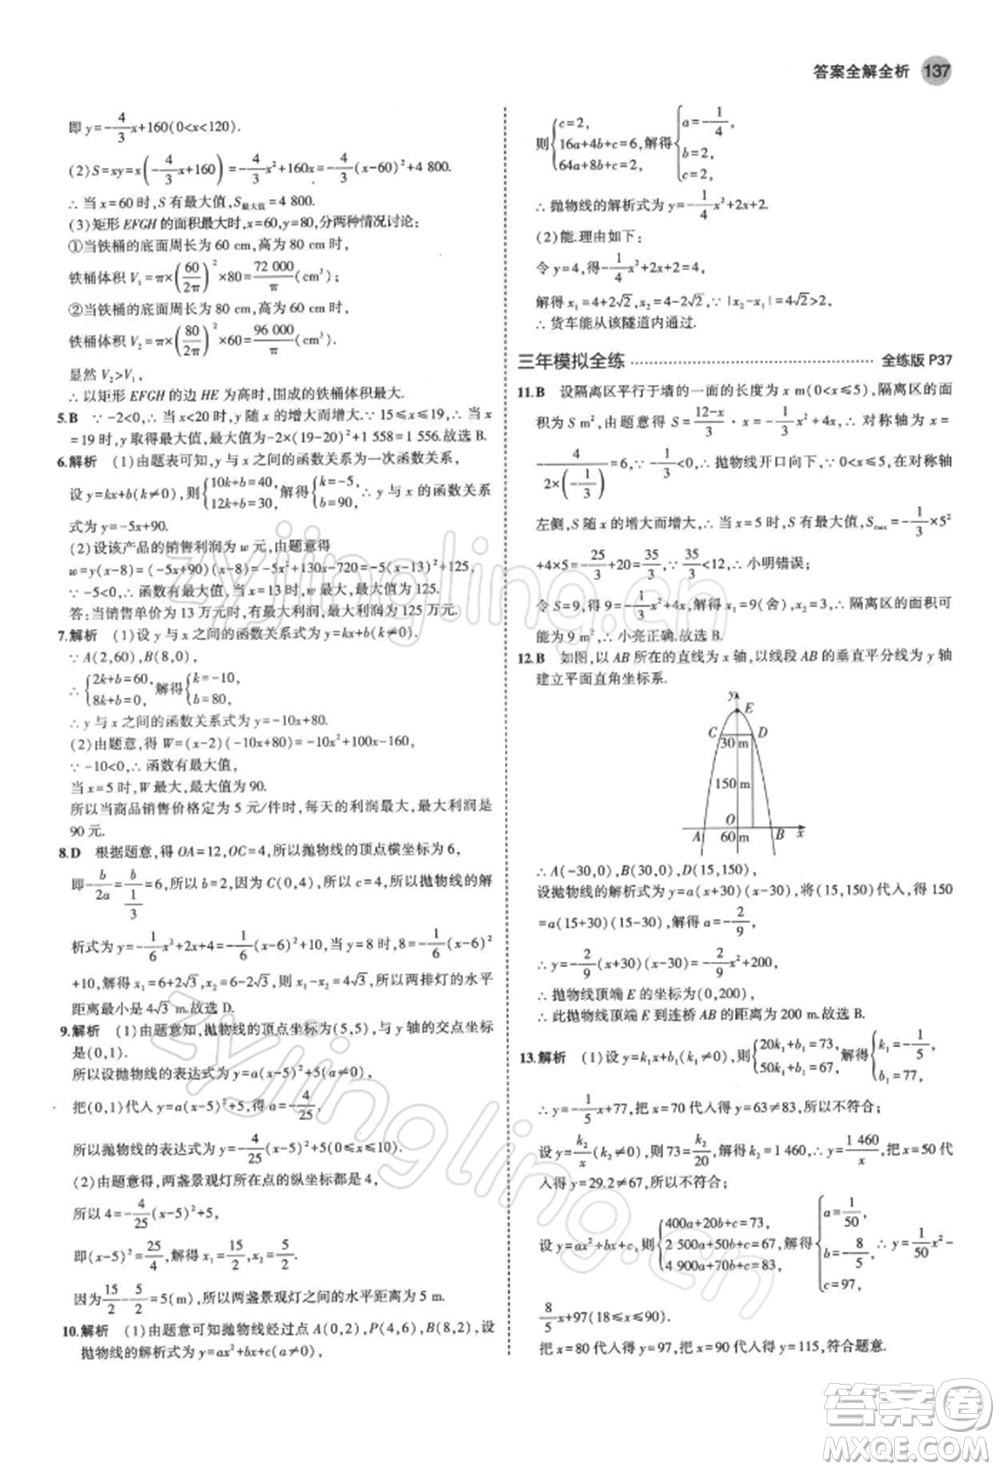 答案全解全析 137
即 y=-4/3x+160(0<x<120).
(2)S=xy=x(-4/3x+160)=-4/3x²+160x=-4/3(x-60)²+4 800.
∴当 x=60 时,S 有最大值,S最大值=4 800.
(3)矩形 EFGH 的面积最大时,x=60,y=80,分两种情况讨论:
①当铁桶的底面周长为 60 cm,高为 80 cm 时,
铁桶体积 V₁=π×(60/2π)²×80=72 000/π(cm³);
②当铁桶的底面周长为 80 cm,高为 60 cm 时,
铁桶体积 V₂=π×(80/2π)²×60=96 000/π(cm³).
显然 V₂>V₁.
∴以矩形 EFGH 的边 HE 为高时,围成的铁桶体积最大.
5.B ∵-2<0,∴当 x<20 时,y 随 x 的增大而增大,∵15≤x≤19,∴当
x=19 时,y 取得最大值,最大值为-2×(19-20)²+1 558=1 556.故选 B.
6.解析 (1)由题表可知,y 与 x 之间的函数关系为一次函数关系,
设 y=kx+b(k≠0),则{10k+b=40, 12k+b=30,解得{k=-5, b=90,∴y 与 x 的函数关系
式为 y=-5x+90.
(2)设该产品的销售利润为 w 元,由题意得
w=y(x-8)=(-5x+90)(x-8)=-5x²+130x-720=-5(x-13)²+125,
∵-5<0,∴当 x=13 时,w 最大,最大值为 125.
答:当销售单价为 13 万元时,有最大利润,最大利润为 125 万元.
7.解析 (1)设 y 与 x 之间的函数关系式为 y=kx+b(k≠0).
∵A(2,60),B(8,0),
∴{2k+b=60, 8k+b=0,解得{k=-10, b=80.
∴y 与 x 之间的函数关系式为 y=-10x+80.
(2)由题意,得 W=(x-2)(-10x+80)=-10x²+100x-160,
∵-10<0,∴函数有最大值,
当 x=5 时,W 最大,W 最大值为 90.
所以当商品销售价格定为 5 元/件时,每天的利润最大,最大利润是
90 元.
8.D 根据题意,得 OA=12,OC=4,所以抛物线的顶点横坐标为 6,
即-b/2a=b/(1/3)=6,所以 b=2,因为 C(0,4),所以 c=4,所以抛物线的解
析式为 y=-1/6x²+2x+4=-1/6(x-6)²+10,当 y=8 时,8=-1/6(x-6)²
+10,解得 x₁=6+2√3,x₂=6-2√3,则 x₁-x₂=4√3,所以两排灯的水平
距离最小是 4√3 m.故选 D.
9.解析 (1)由题意知,抛物线的顶点坐标为(5,5),与 y 轴的交点坐标
是(0,1).
所以设抛物线的表达式为 y=a(x-5)²+5,
把(0,1)代入 y=a(x-5)²+5,得 a=-4/25,
所以抛物线的表达式为 y=-4/25(x-5)²+5(0≤x≤10).
(2)由题意得,两盏景观灯所在点的纵坐标都是 4,
所以 4=-4/25(x-5)²+5,
即(x-5)²=25/4,解得 x₁=15/2,x₂=5/2.
因为15/2-5/2=5(m),所以两盏景观灯之间的水平距离为 5 m.
10.解析 (1)由题意可知抛物线经过点 A(0,2),P(4,6),B(8,2),设
抛物线的解析式为 y=ax²+bx+c(a≠0),
则{c=2, 16a+4b+c=6, 64a+8b+c=2,解得{a=-1/4, b=2, c=2.
∴抛物线的解析式为 y=-1/4x²+2x+2.
(2)能.理由如下:
令 y=4,则-1/4x²+2x+2=4,
解得 x₁=4+2√2,x₂=4-2√2,∵|x₂-x₁|=4√2>2,
∴货车能从该隧道内通过.
三年模拟全练 全练版 P37
11.B 设隔离区平行于墙的一面的长度为 x m(0<x≤5),隔离区的面
积为 S m²,由题意得 S=(12-x)/3·x=-1/3x²+4x,∴对称轴为 x=
-4/(2×(-1/3))=6,∵抛物线开口向下,0<x≤5,∴在对称轴
左侧,S 随 x 的增大而增大,∴当 x=5 时,S 有最大值,Smax=-1/3×5²
+4×5=-25/3+20=35/3,∵9<35/3<12,∴小明错误;
令 S=9,得 9=-1/3x²+4x,解得 x₁=9(舍),x₂=3,∴隔离区的面积可
能为 9 m²,∴小亮正确.故选 B.
12.B 如图,以 AB 所在的直线为 x 轴,以线段 AB 的垂直平分线为 y 轴
建立平面直角坐标系.
y E
C D
30 m
150 m
A O 60 m B x
∴A(-30,0),B(30,0),D(15,150),
设抛物线的解析式为 y=a(x+30)(x-30),将(15,150)代入,得 150
=a(15+30)(15-30),解得 a=-2/9,
∴y=-2/9(x+30)(x-30)=-2/9x²+200,
∴抛物线顶端 E 的坐标为(0,200),
∴此抛物线顶端 E 到连桥 AB 的距离为 200 m.故选 B.
13.解析 (1)设 y=k₁x+b₁(k₁≠0),则{20k₁+b₁=73, 50k₁+b₁=67,解得{k₁=-1/5, b₁=77,
∴y=-1/5x+77,把 x=80 代入得 y=61,所以不符合;
设 y=k₂/x(k₂≠0),则 73=k₂/20,解得 k₂=1 460,∴y=1 460/x,把 x=50 代
入得 y=29.2≠67,所以不符合;
设 y=ax²+bx+c(a≠0),则{400a+20b+c=73, 2 500a+50b+c=67, 6 400a+80b+c=73,解得{a=1/50, b=-8/5, c=97,∴y=1/50x²-
8/5x+97(18≤x≤x).
把 x=80 代入得 y=97,把 x=110 代入得 y=115,符合题意.
zyjingling.cn
zyjingling.cn
答案圈
MXQE.COM